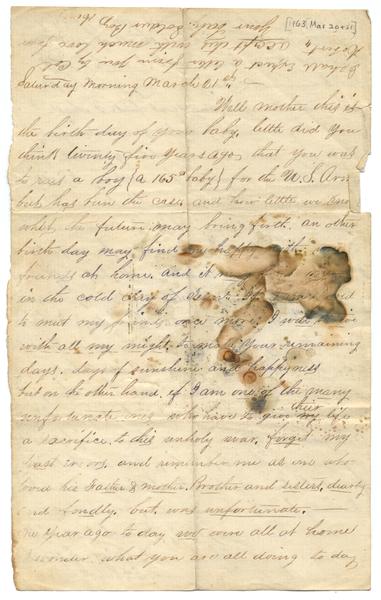 [1863, Mar 20 & 21]
I shall expect a letter from you by Col
accept this with much love from
Your baby Soldier Boy
Saturday Morning March 21st
Well mother this is
the birth day of your baby. little did you
think twenty five years ago, that you was
to rais a Boy (a 165 lb baby) for the U.S. Army
but has been the case. and how little we know
what the future may bring forth. an other
birth day may find me happy with
friends at home. and it
in the cold clay of
to meet my once more I will
with all my might to make your remaining
days. days of sunshine and happyness
but on the other hand if I am one of the many
unfortunate ones who have to give their my life
a sacrifice to this unholy war. forget my
past errors and remember me as one who
loved his Father & Mother Brother and sisters. dearly
and fondly. but was unfortunate. —
One year ago to day we were all at home
I wonder what you are all doing to day